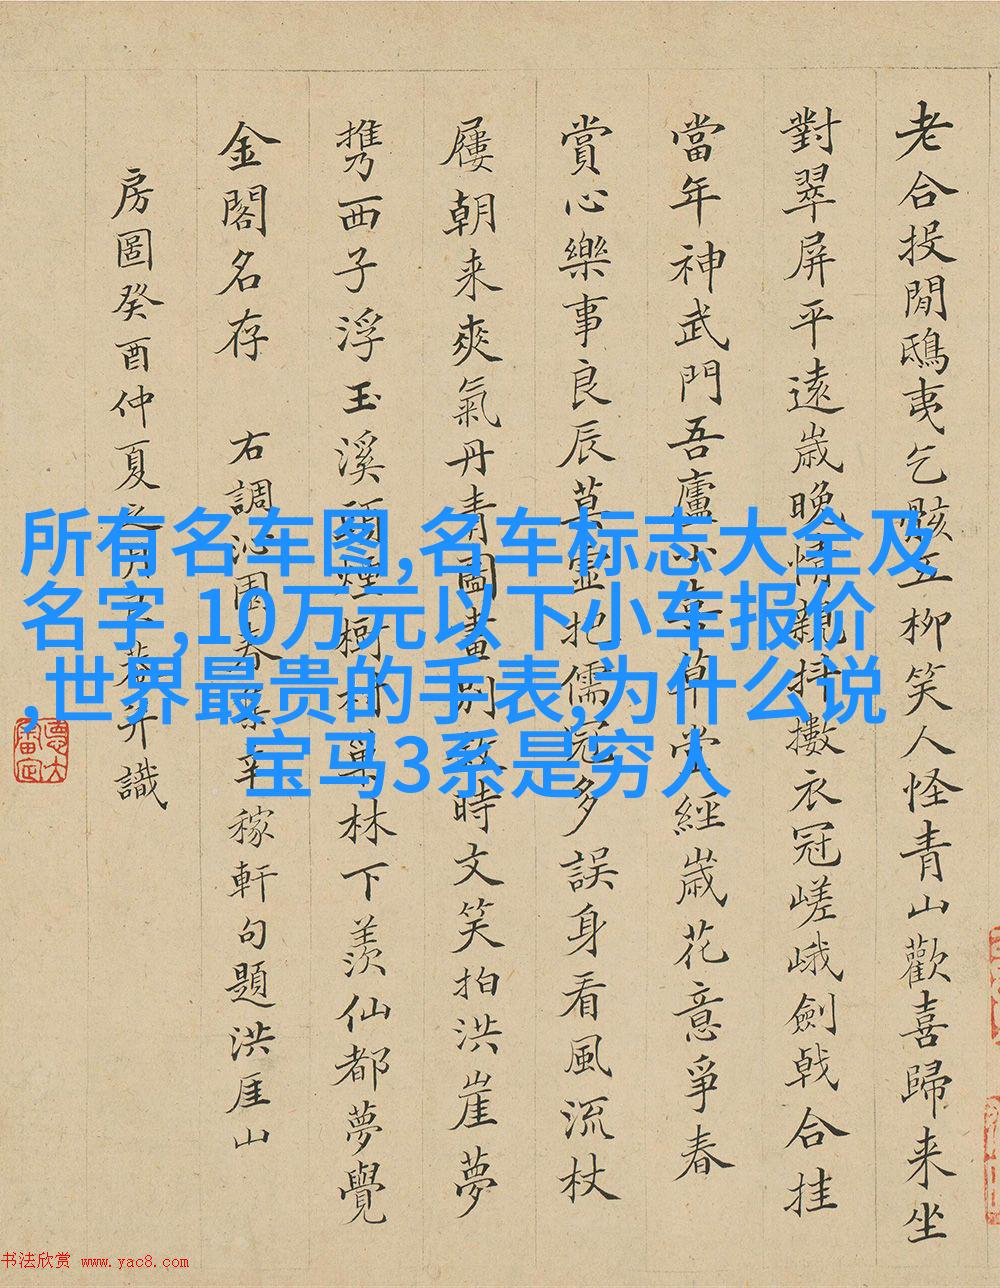 老合投閒鴟夷乞骸五柳笑人怪青山歡喜歸来坐
對翠屏平遠歲晚情親抖擻衣冠嵯峨劍戟合挂
當年神武門吾廬小草堂經歲花意爭春
賞心樂事良辰莫把儒冠多誤身看風流杖
屨朝来爽氣丹青圖畫別時文笑拍洪崖夢
携西子浮玉溪頭煙樹村巢林下羨仙都夢覺
金閣名存 右調沁園春集辛稼軒句題洪厓山
房圖癸酉仲夏之月并識
所有名车图,名车标志大全及
名字,10万元以下小车报价
,世界最贵的手表,为什么说
宝马3系是穷人
书法欣赏 www.yac8.com